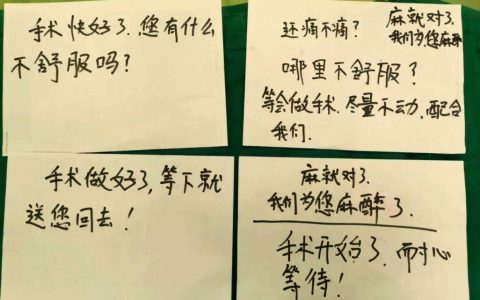 手术快好了.您有什么
不舒服吗?
还痛不痛?
麻就对了.
我们为您麻醉
哪里不舒服?
等会做手术.尽量不动,配合
我们.
手术做好了,等下就
送您回去!
麻就对了.
我们为您麻醉了.
手术开始了.耐心
等待!